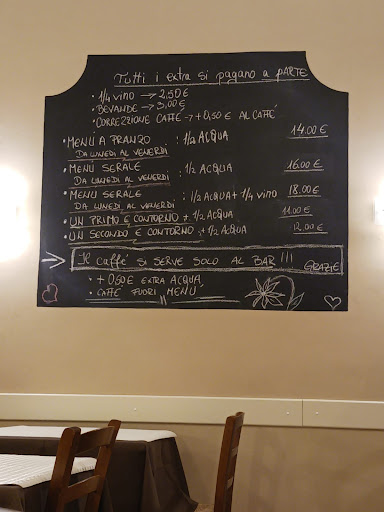 Tutti i extra si pagano a PARTE
• 1/4 vino → 2,50€
• BEVANDE → 3,00€
• CORREZZIONE CAFFÉ → + 0,50€ AL CAFFÉ
• MENÚ A PRANZO : 1/2 ACQUA 14.00€
DA LUNEDÍ AL VENERDÍ
• MENÚ SERALE : 1/2 ACQUA 16.00€
DA LUNEDÍ AL VENERDÍ
• MENU SERALE : 1/2 ACQUA + 1/4 vino 18.00€
DA LUNEDÍ AL VENERDÍ
• UN PRIMO E CONTORNO + 1/2 ACQUA 11.00€
• UN SECONDO E CONTORNO + 1/2 ACQUA 12,00€
→ Il caffé SI SERVE SOLO AL BAR!!! GRAZIE
• + 0,50€ EXTRA ACQUA
• CAFFÉ FUORI MENÚ